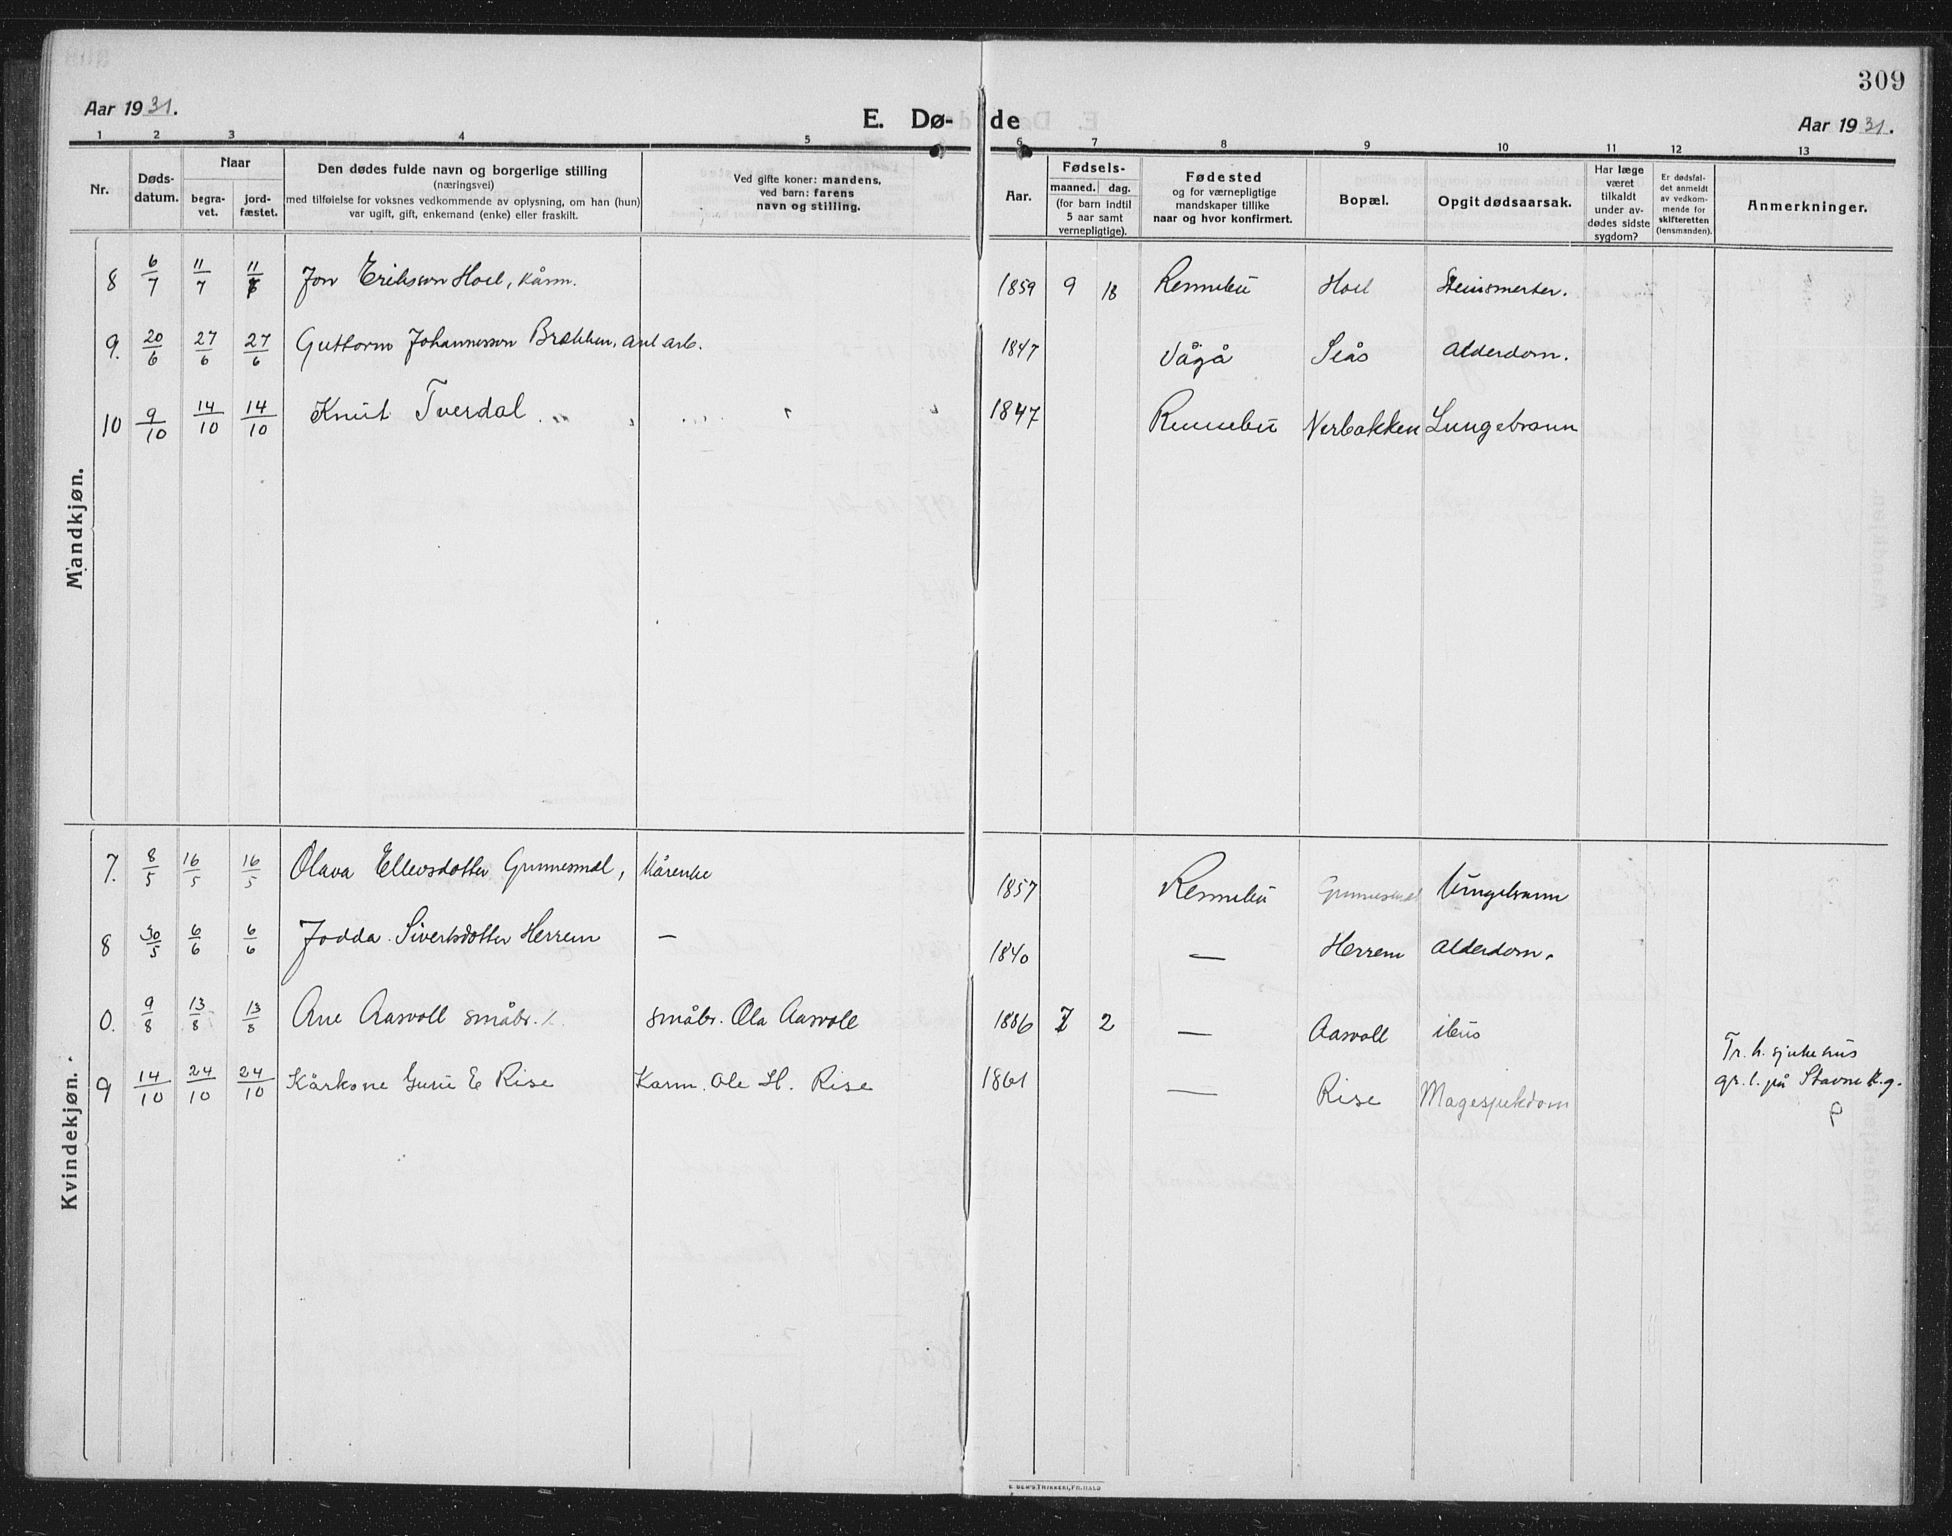 309
Aar 1931. E. Dø- de Aar 1931.
1 2 3 4 5 6 7 8 9 10 11 12 13
Nr.
Døds-
datum.
Naar
begra-
vet.
jord-
fæstet.
Den dødes fulde navn og borgerlige stilling
(næringsvei)
med tilføielse for voksnes vedkommende av oplysning, om han (hun)
var ugift, gift, enkemand (enke) eller fraskilt.
Ved gifte koner: mandens,
ved barn: farens
navn og stilling.
Aar.
Fødsels-
maaned. dag.
(for barn indtil
5 aar samt
vernepligtige).
Fødested
og for værnepligtige
mandskaper tillike
naar og hvor konfirmert.
Bopæl.
Opgit dødsaarsak.
Har læge
været
tilkaldt
under av-
dødes sidste
sygdom?
Er dødsfal-
det anmeldt
av vedkom-
mende for
skifteretten
(lensmanden).
Anmerkninger.
Mandkjøn.
8 6/7 11/7 11/7 Jon Eriksson Hoel, kårm. 1859 9 18 Rennebu Hoel
9. 20/6 27/6 27/6 Guttorm Johannesson Brækken, arb. 1847 Vågå Seås Alderdom.
10 9/10 14/10 14/10 Knut Tverdal 1847 Rennebu Nerbakken Lungebrann
Kvindekjøn.
7. 8/5 16/5 16/5 Olava Ellevsdotter Gunnesmal, kårenke 1857 Rennebu Gunnesmal Lungebrann
8 30/5 6/6 6/6 Jodda Sivertsdotter Herrem — 1840 — Herrem Alderdom.
0. 9/8 13/8 13/8 Ane Aasvoll småbr. småbr. Ola Aasvoll 1886 7 2 — Aasvoll ileus
9 14/10 24/10 24/10 Kårkone Guru E Rise Kårm. Ole H. Rise 1861 — Rise Magesjukdom
Tr. h. sjukehus
gr. l. på Stavne k.g.